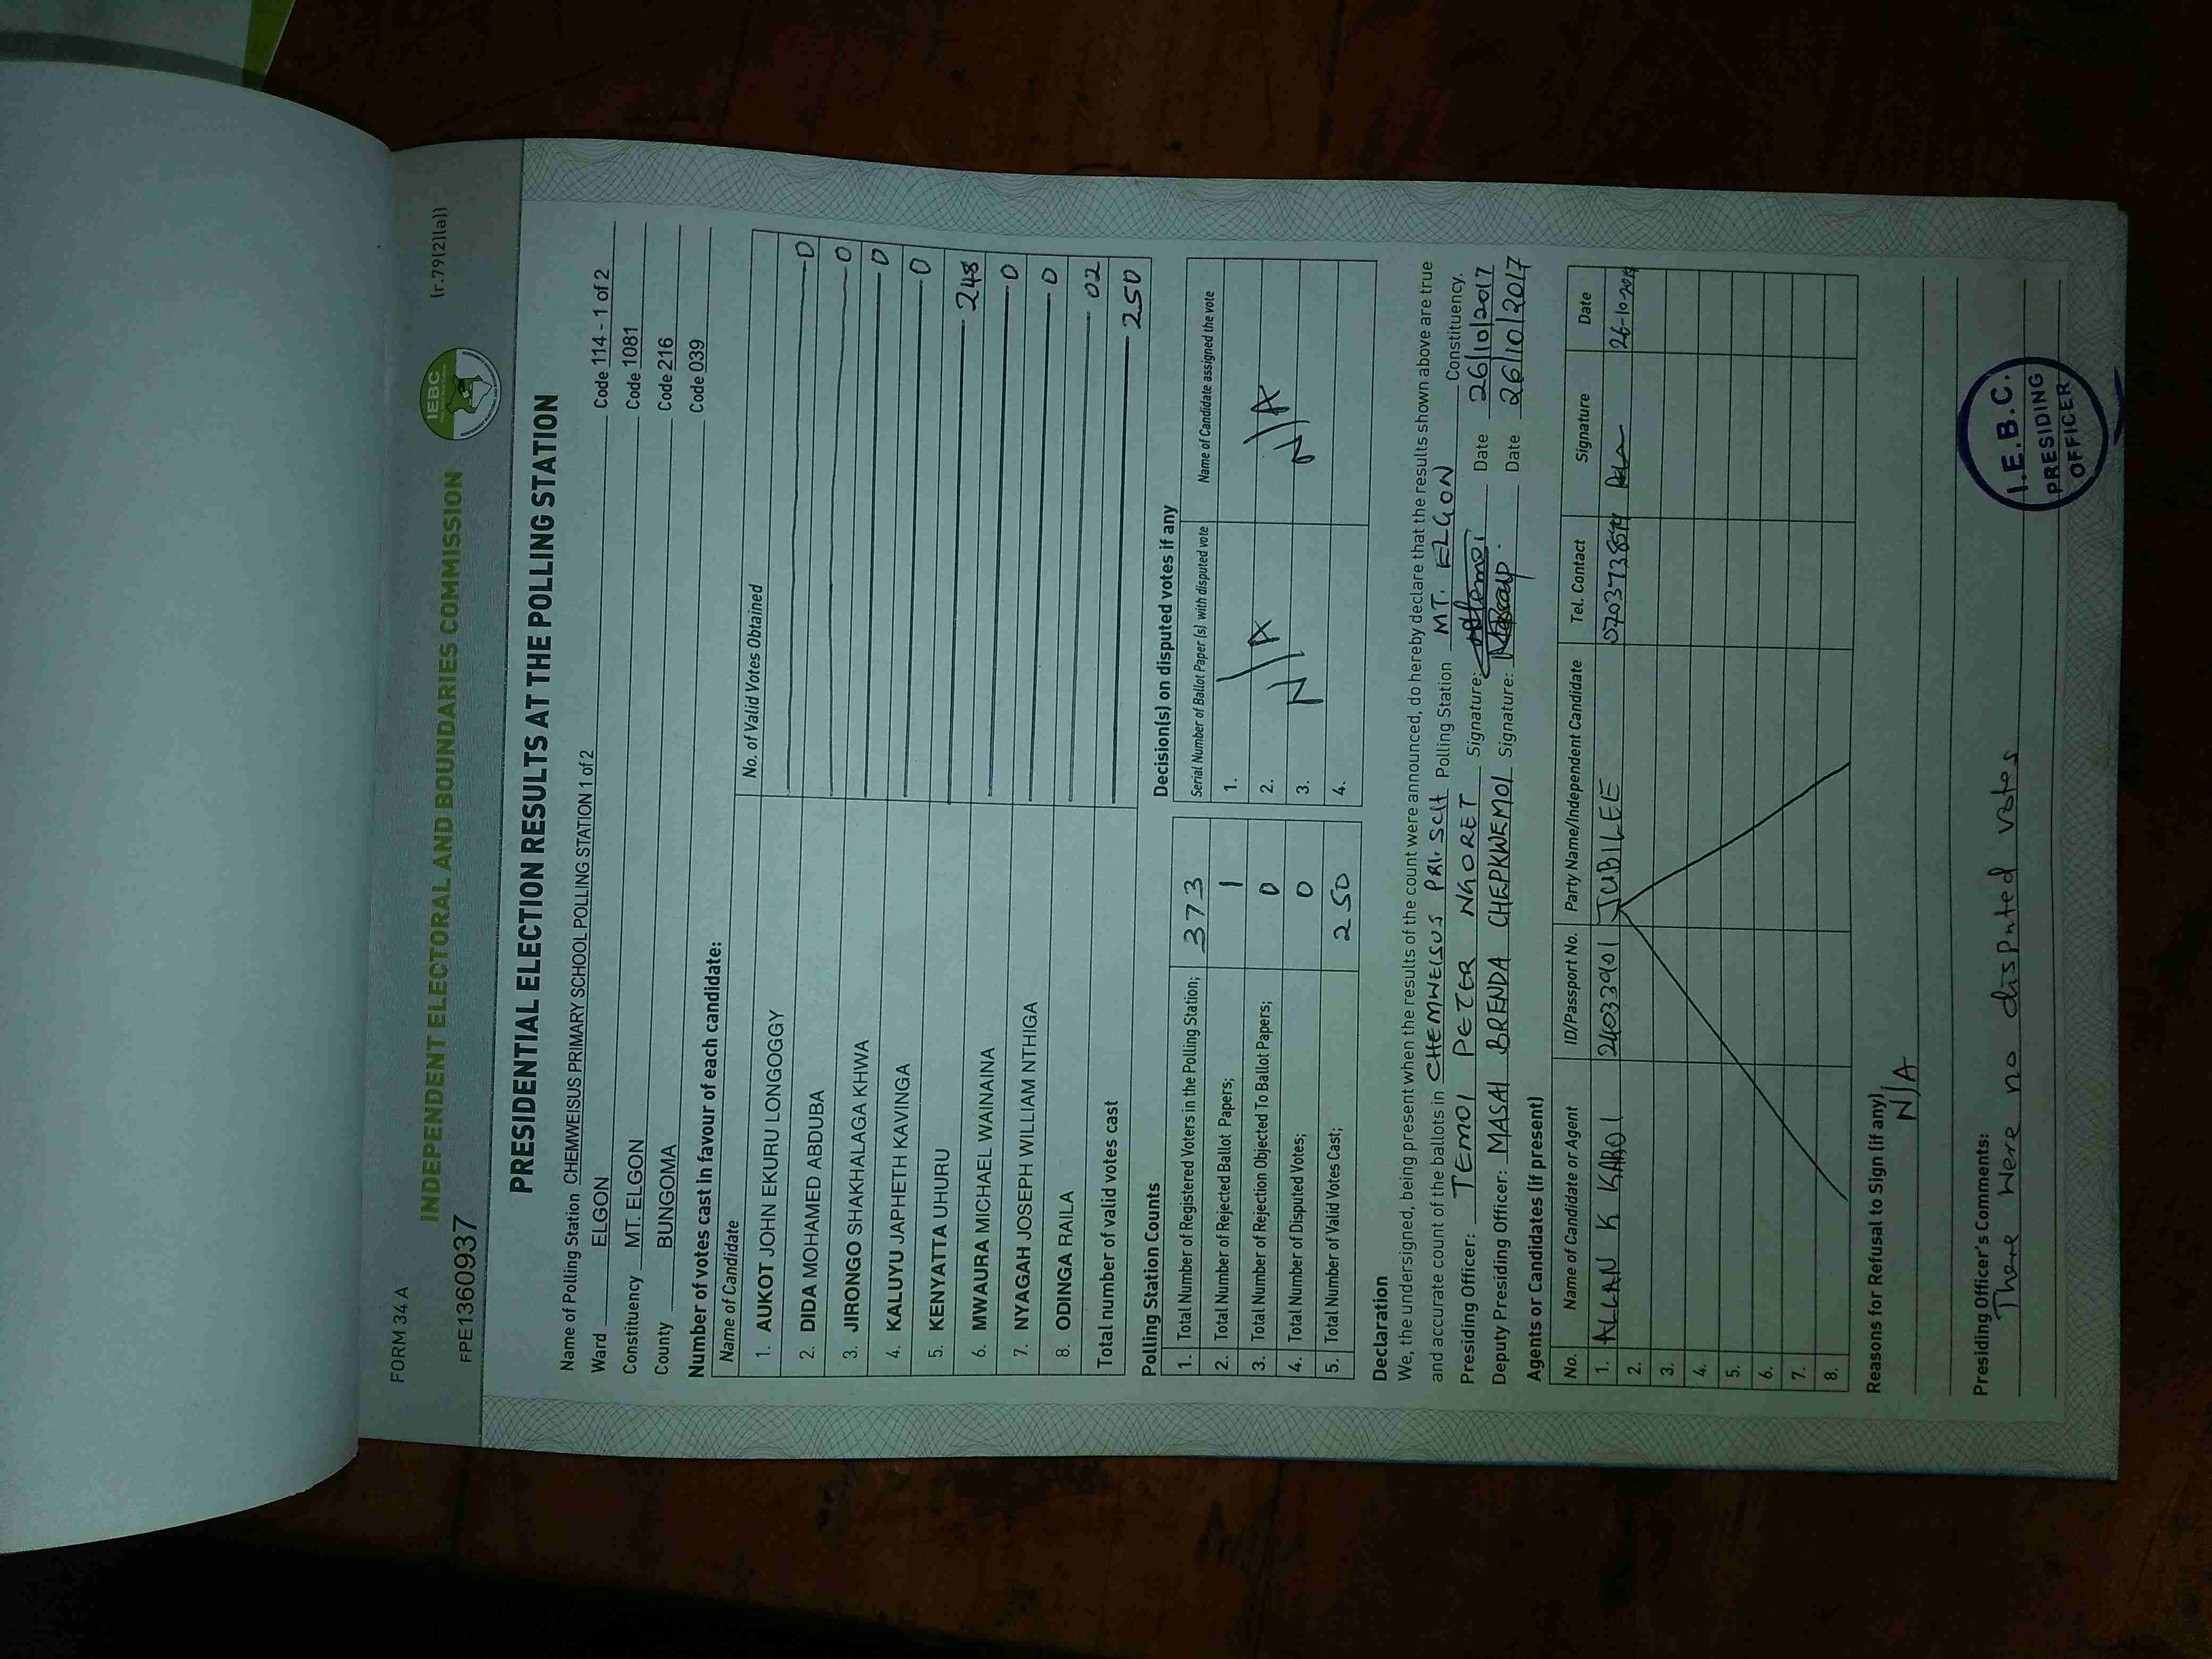 FORM 34 A
(r.79(2)(a))
INDEPENDENT ELECTORAL AND BOUNDARIES COMMISSION
IEBC
FPE1360937
PRESIDENTIAL ELECTION RESULTS AT THE POLLING STATION
Name of Polling Station CHEMWEISUS PRIMARY SCHOOL POLLING STATION 1 of 2 Code 114 - 1 of 2
Ward ELGON Code 1081
Constituency MT. ELGON Code 216
County BUNGOMA Code 039
Number of votes cast in favour of each candidate:
Name of Candidate No. of Valid Votes Obtained
1. AUKOT JOHN EKURU LONGOGGY 0
2. DIDA MOHAMED ABDUBA 0
3. JIRONGO SHAKHALAGA KHWA 0
4. KALUYU JAPHETH KAVINGA 0
5. KENYATTA UHURU 248
6. MWAURA MICHAEL WAINAINA 0
7. NYAGAH JOSEPH WILLIAM NTHIGA 0
8. ODINGA RAILA 02
Total number of valid votes cast 250
Polling Station Counts
1. Total Number of Registered Voters in the Polling Station; 373
2. Total Number of Rejected Ballot Papers; 1
3. Total Number of Rejection Objected To Ballot Papers; 0
4. Total Number of Disputed Votes; 0
5. Total Number of Valid Votes Cast; 250
Decision(s) on disputed votes if any
Serial Number of Ballot Paper (s) with disputed vote Name of Candidate assigned the vote
1. N/A
2. N/A
3. N/A N/A
4.
Declaration
We, the undersigned, being present when the results of the count were announced, do hereby declare that the results shown above are true
and accurate count of the ballots in CHEMWEISUS PRI. SCH Polling Station MT. ELGON Constituency.
Presiding Officer: TEMOI PETER NGORET Signature: Date 26/10/2017
Deputy Presiding Officer: MASAI BRENDA CHEPKWEMOI Signature: Date 26/10/2017
Agents or Candidates (if present)
No. Name of Candidate or Agent ID/Passport No. Party Name/Independent Candidate Tel. Contact Signature Date
1. ALLAN K KABOI 24033901 JUBILEE 26-10-2017
2.
3.
4.
5.
6.
7.
8.
Reasons for Refusal to Sign (if any)
N/A
Presiding Officer's Comments:
There were no disputed votes
I.E.B.C.
PRESIDING
OFFICER